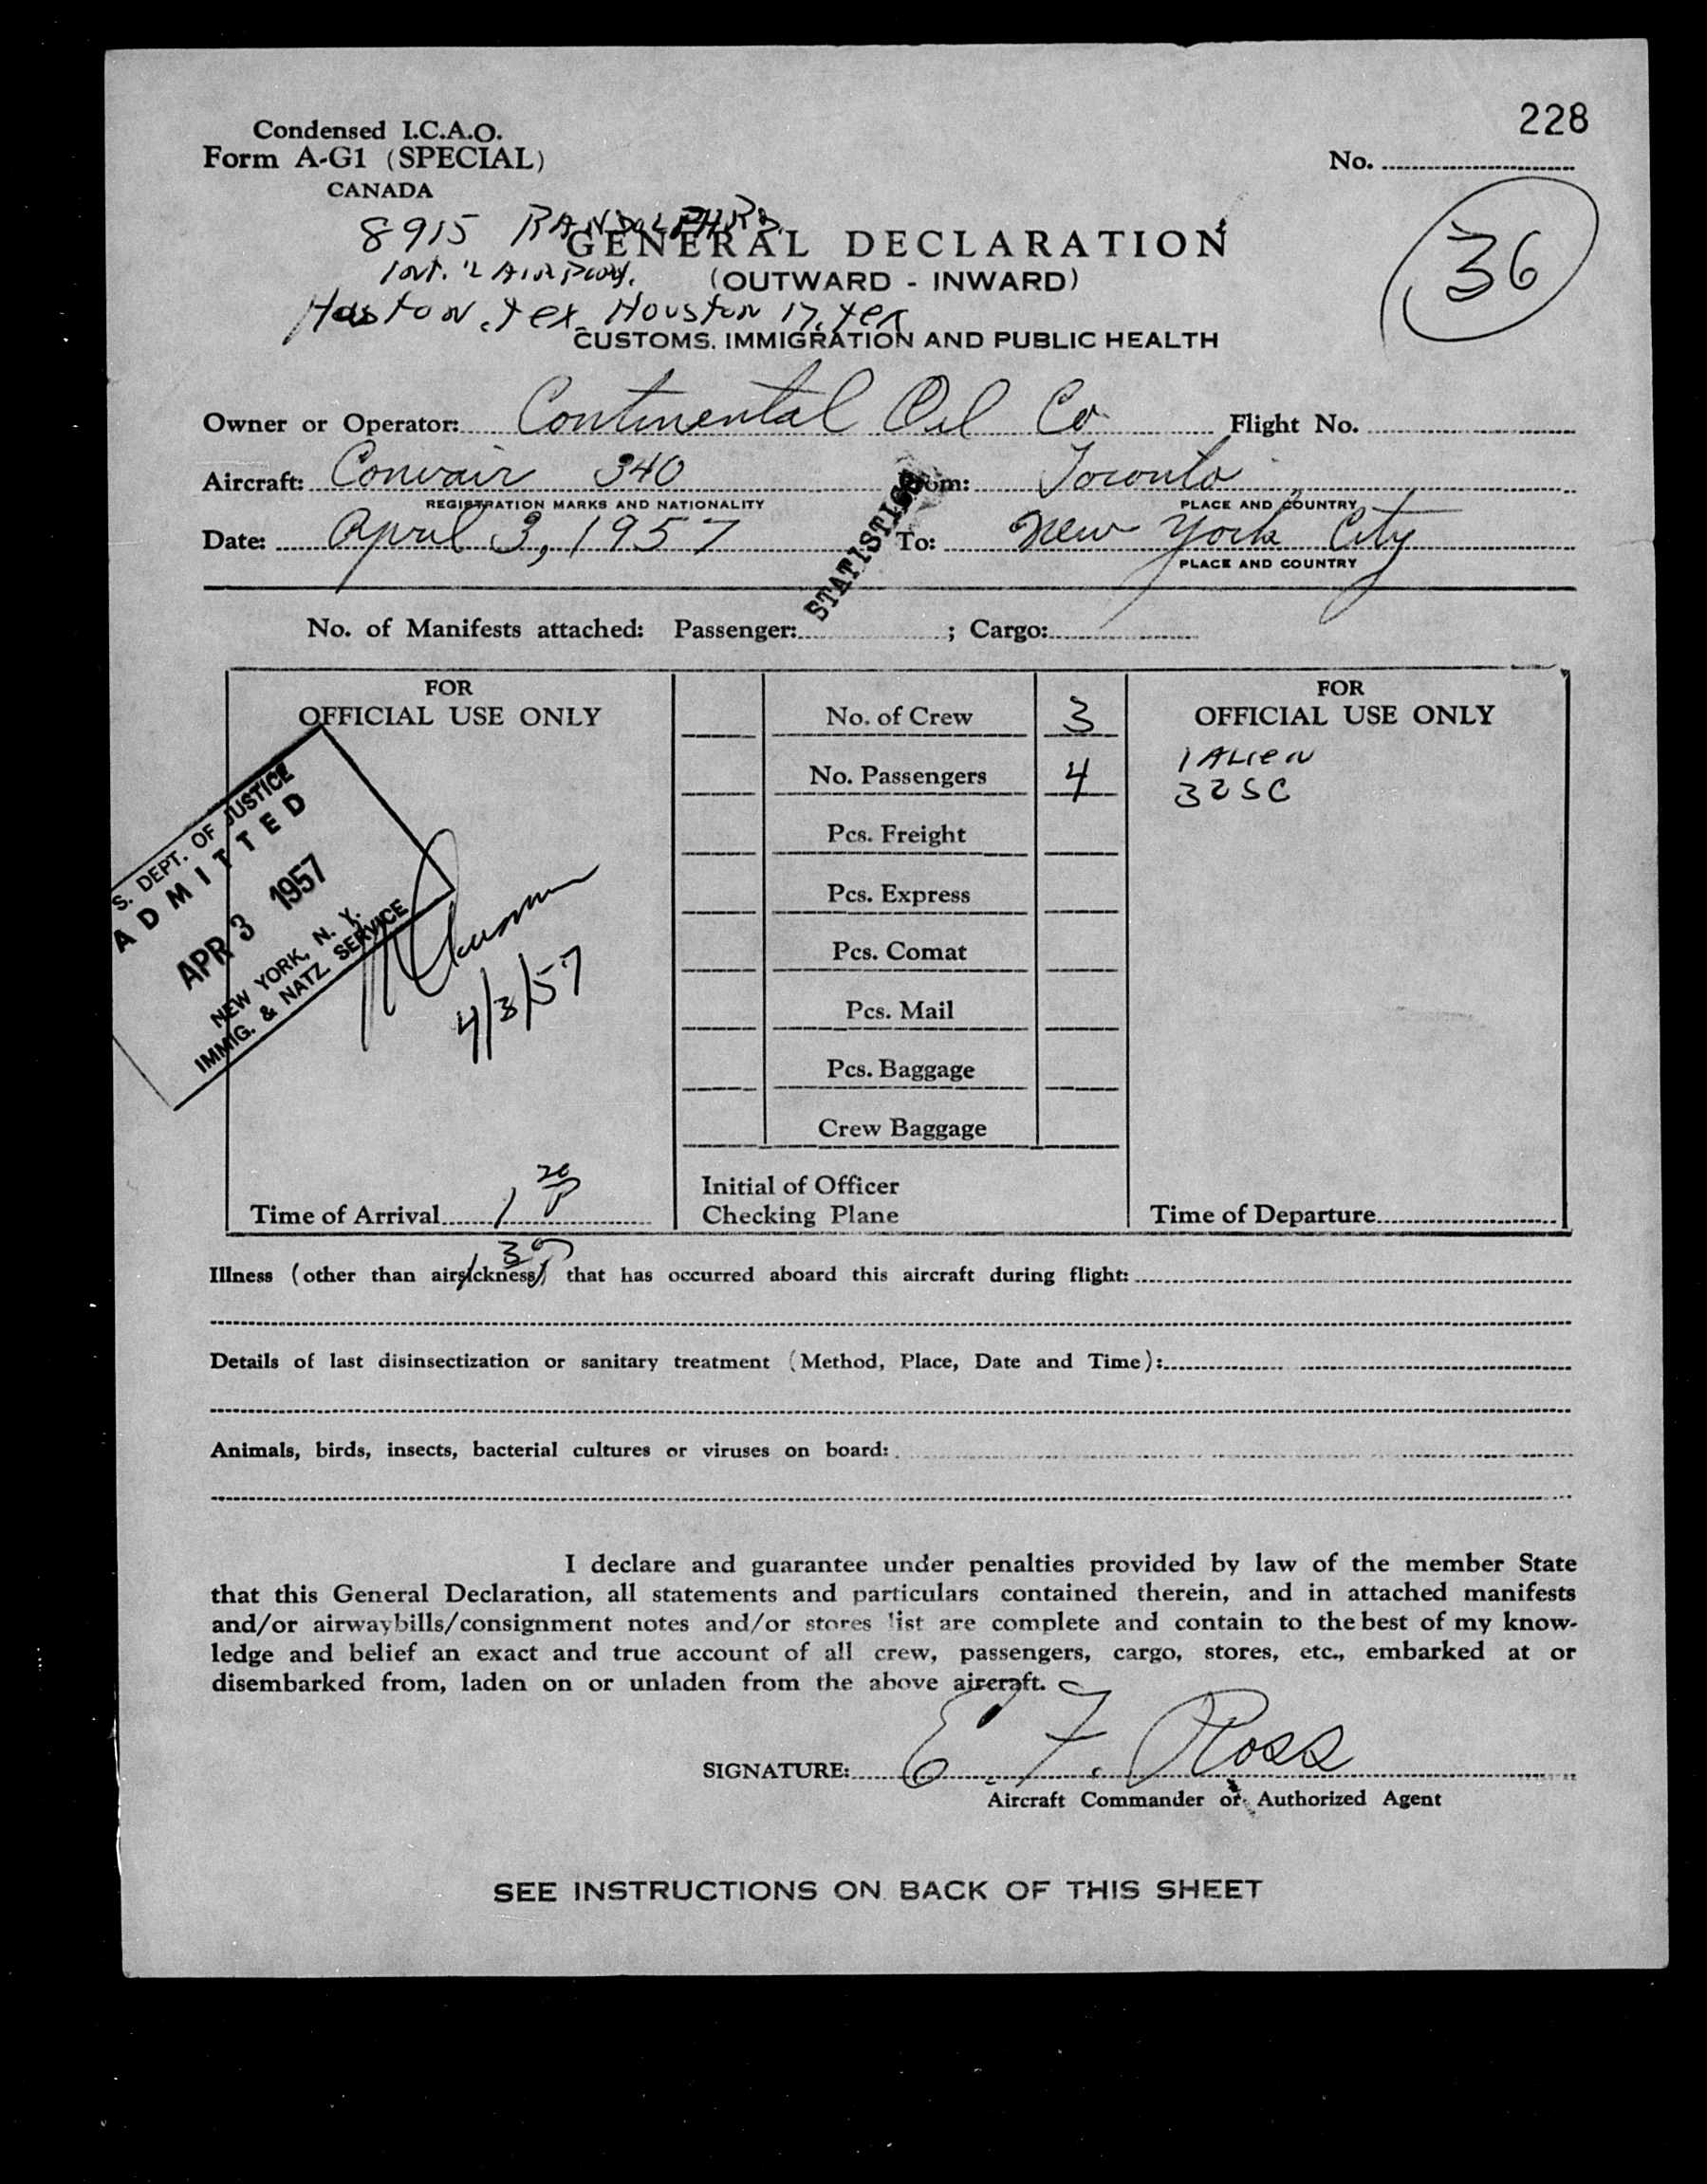 228
Condensed I.C.A.O.
Form A-G1 (SPECIAL)
CANADA
No.
36
8915 RANDOLPH RD.
GENERAL DECLARATION
Int.'l Airport.
(OUTWARD - INWARD)
Houston, tex. Houston 17, tex
CUSTOMS, IMMIGRATION AND PUBLIC HEALTH
Owner or Operator: Continental Oil Co. Flight No.
Aircraft: Convair 340 From: Toronto
REGISTRATION MARKS AND NATIONALITY PLACE AND COUNTRY
Date: April 3, 1957 To: New York City
PLACE AND COUNTRY
STATISTICS
No. of Manifests attached: Passenger: ; Cargo:
FOR
OFFICIAL USE ONLY
S. DEPT. OF JUSTICE
ADMITTED
APR 3 1957
NEW YORK, N. Y.
IMMIG. & NATZ. SERVICE
4/3/57
Time of Arrival 1 20 P
1 30 P
No. of Crew 3
No. Passengers 4
Pcs. Freight
Pcs. Express
Pcs. Comat
Pcs. Mail
Pcs. Baggage
Crew Baggage
Initial of Officer
Checking Plane
FOR
OFFICIAL USE ONLY
1 ALIEN
3 USC
Time of Departure
Illness (other than airsickness) that has occurred aboard this aircraft during flight:
Details of last disinsectization or sanitary treatment (Method, Place, Date and Time):
Animals, birds, insects, bacterial cultures or viruses on board:
I declare and guarantee under penalties provided by law of the member State
that this General Declaration, all statements and particulars contained therein, and in attached manifests
and/or airwaybills/consignment notes and/or stores list are complete and contain to the best of my know-
ledge and belief an exact and true account of all crew, passengers, cargo, stores, etc., embarked at or
disembarked from, laden on or unladen from the above aircraft.
SIGNATURE: E. F. Ross
Aircraft Commander or Authorized Agent
SEE INSTRUCTIONS ON BACK OF THIS SHEET